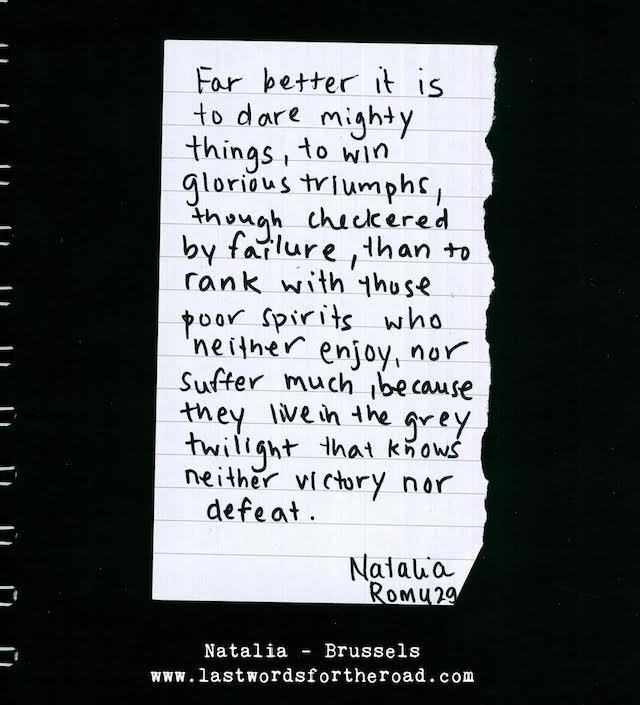 Far better it is
to dare mighty
things, to win
glorious triumphs,
though checkered
by failure, than to
rank with those
poor spirits who
neither enjoy, nor
suffer much, because
they live in the grey
twilight that knows
neither victory nor
defeat.
Natalia
Natalia - Brussels
www.lastwordsfortheroad.com